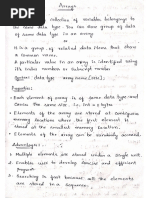 Arrays
collection of variable belongings to
the same data type. You can store group of data
of same data type in an array.
or
It is a group of related data items that share
a common name.
A particular value in an array is identified using
its index number or subscript number.
Syntax: data type array name [size];
Properties:
Each element of array is of same data type and
carries the same size
Elements of the array are stored at contiguous
memory locations where the first element is
stored at the smallest memory location.
Elements of the array can be randomly accessed
Advantages:
Multiple elements are stored under a single unit.
to develop concise and efficient
program.
Searching is fast because all the elements
are stored in a sequence.